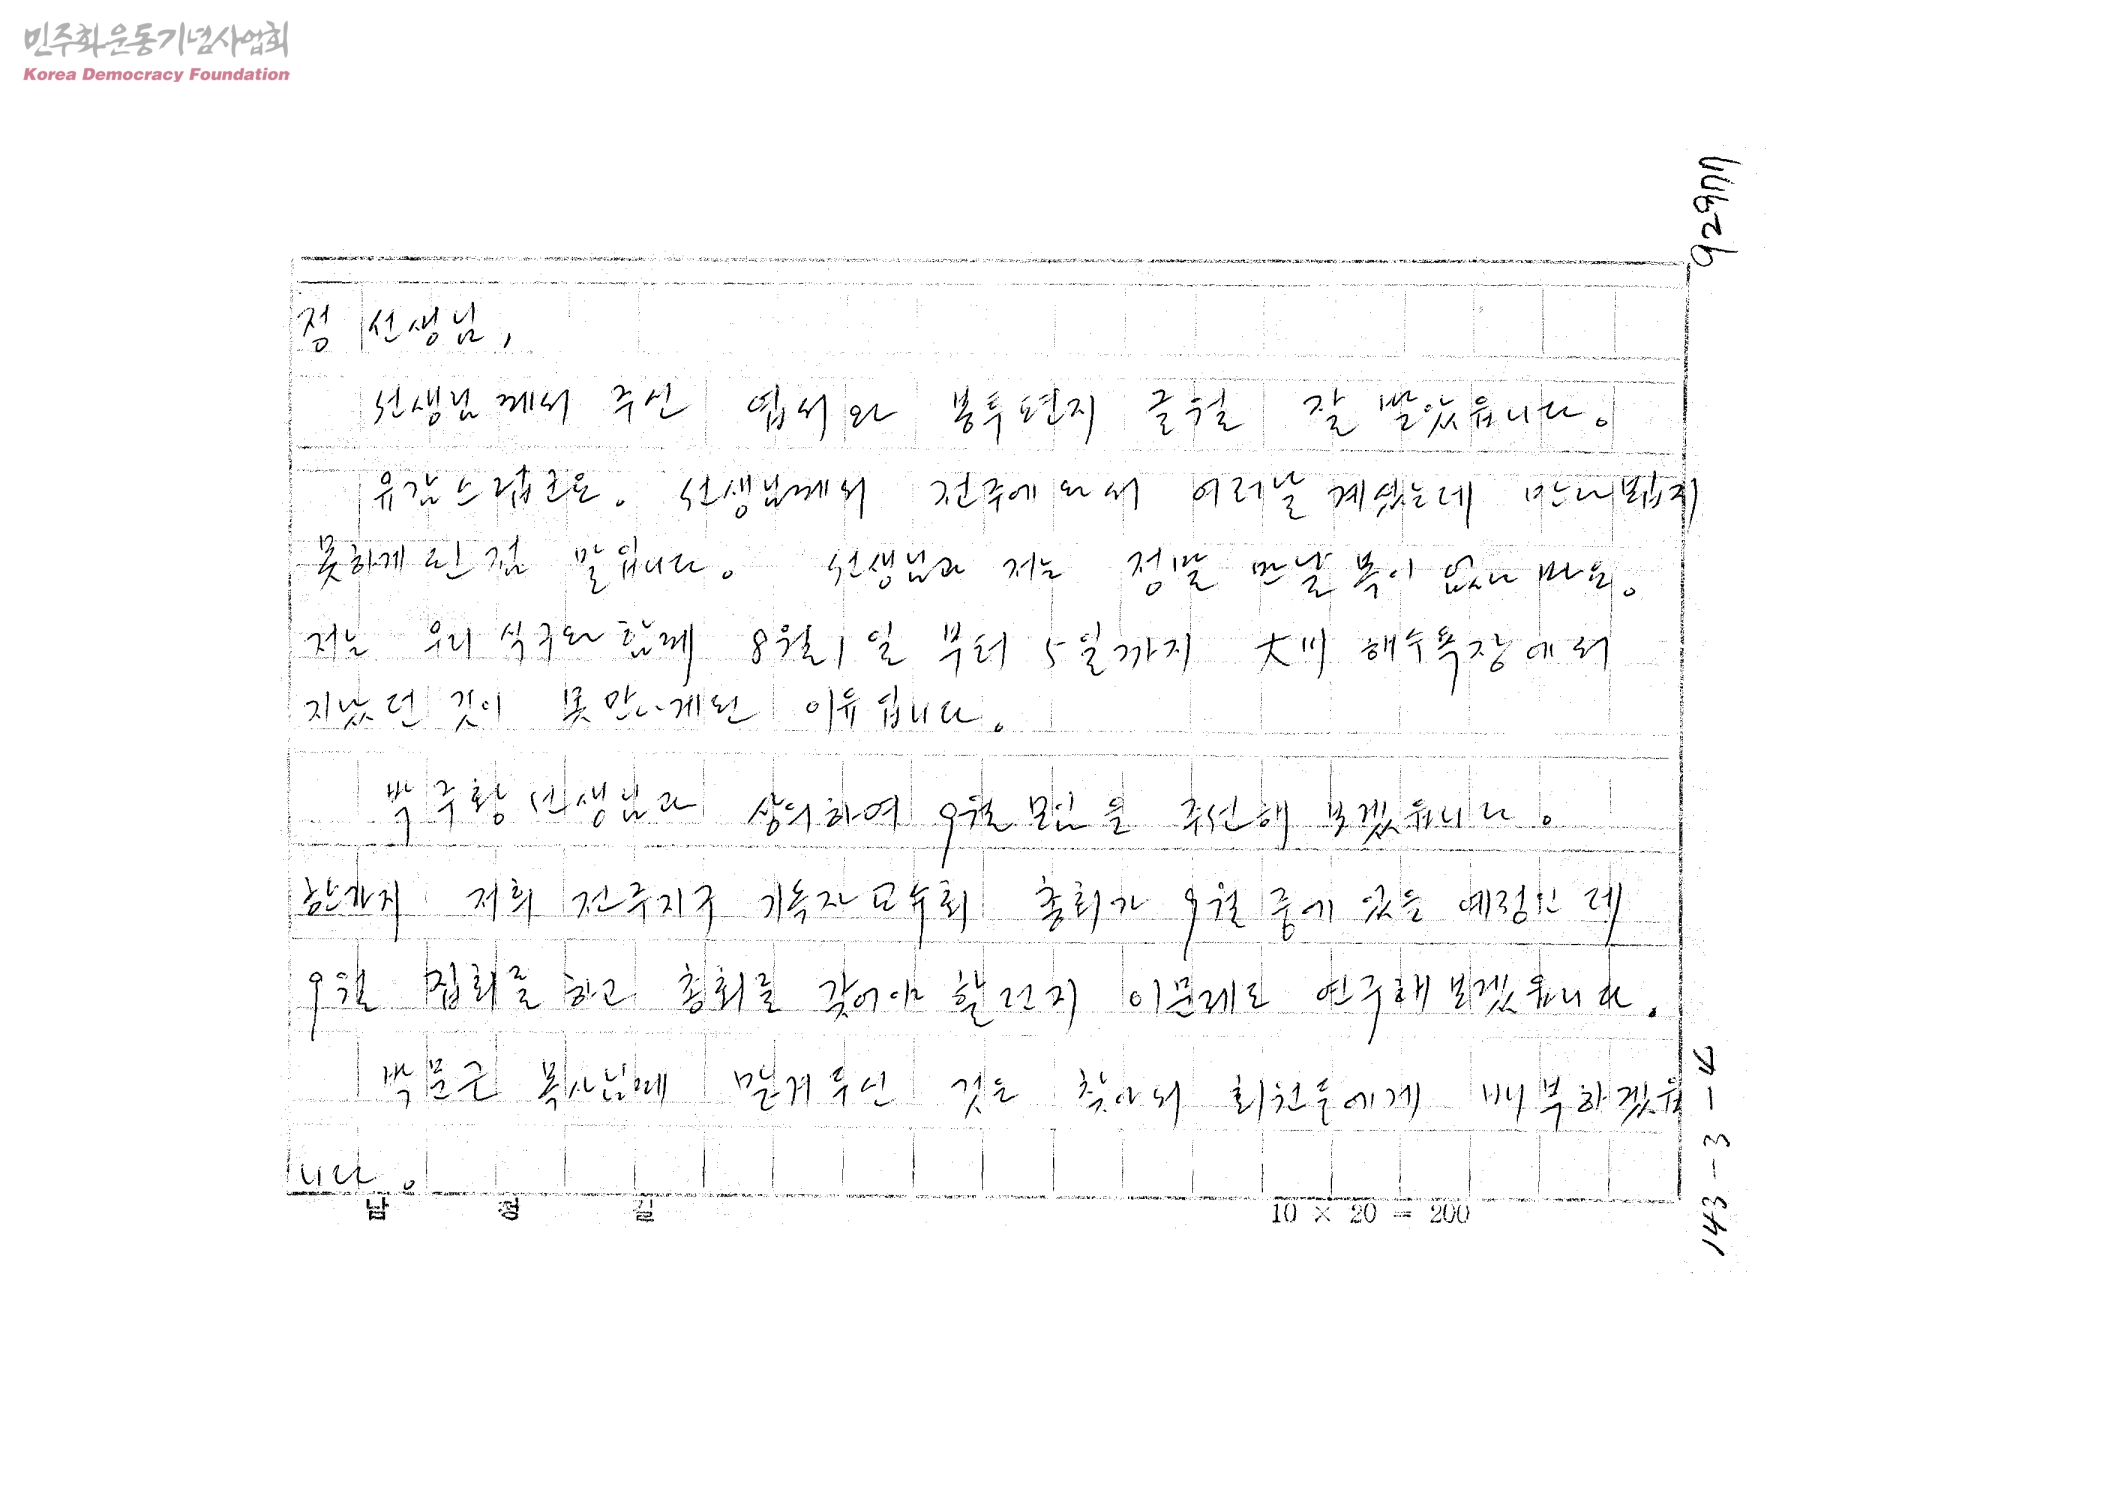 민주화운동기념사업회
Korea Democracy Foundation
정 선생님,
선생님께서 주신 엽서와 봉투편지 글월 잘 받았읍니다。
유감스럽군요。 선생님께서 전주에 와서 여러날 계셨는데 만나뵙지
못하게 된 점 말입니다。 선생님과 저는 정말 만날 복이 없나봐요。
저는 우리 식구와 함께 8월 1일 부터 5일까지 大川 해수욕장에서
지났던 것이 못만나게된 이유입니다。
박주황 선생님과 상의하여 9월 모임을 주선해 보겠읍니다。
한가지 저희 전주지구 기독자교수회 총회가 9월 중에 있을 예정인데
9월 집회를 하고 총회를 갖어야 할런지 이문제도 연구해보겠읍니다.
박문근 목사님께 맡겨두신 것은 찾아서 회원들에게 배부하겠읍
니다。
남 정 길
10 × 20 = 200
143-3-4